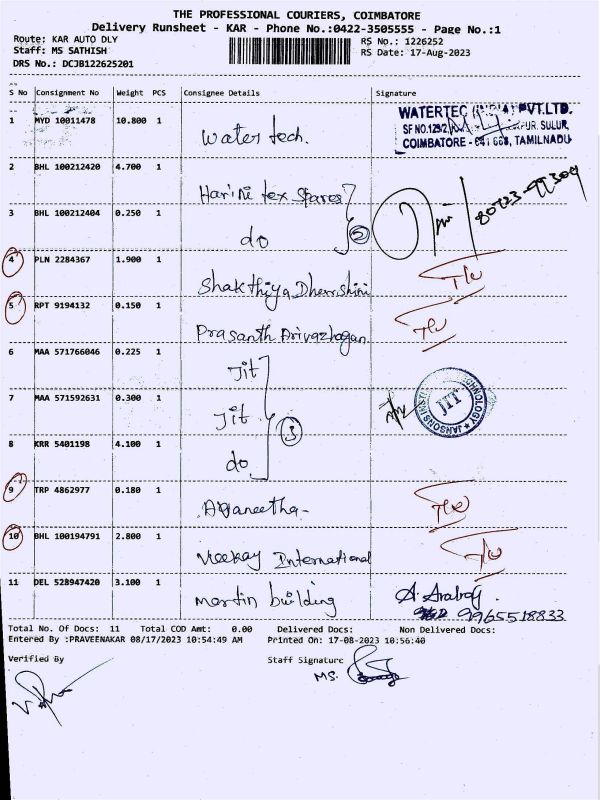 THE PROFESSIONAL COURIERS, COIMBATORE
Delivery Runsheet - KAR - Phone No.:0422-3505555 - Page No.:1
Route: KAR AUTO DLY
RS No.: 1226252
Staff: MS SATHISH
RS Date: 17-Aug-2023
DRS No.: DCJB122625201
S No Consignment No Weight PCS Consignee Details Signature
1 MYD 10011478 10.800 1 Water tech.
WATERTEC (INDIA) PVT.LTD.
SF NO.129/2, PUR, SULUR,
COIMBATORE - 641 668, TAMILNADU
2 BHL 100212420 4.700 1 Harini tex Spares
3 BHL 100212404 0.250 1 do 2
4 PLN 2284367 1.900 1 Shakthiya Dharshini
5 RPT 9194132 0.150 1 Prasanth Arivazhagan
6 MAA 571766046 0.225 1 Jit
7 MAA 571592631 0.300 1 Jit 3
JIT
8 KRR 5401198 4.100 1 do
9 TRP 4862977 0.180 1
10 BHL 100194791 2.800 1 Veekay International
11 DEL 528947420 3.100 1 martin building
9965518833
Total No. Of Docs: 11 Total COD Amt: 0.00 Delivered Docs: Non Delivered Docs:
Entered By :PRAVEENAKAR 08/17/2023 10:54:49 AM Printed On: 17-08-2023 10:56:40
Verified By Staff Signature
MS.